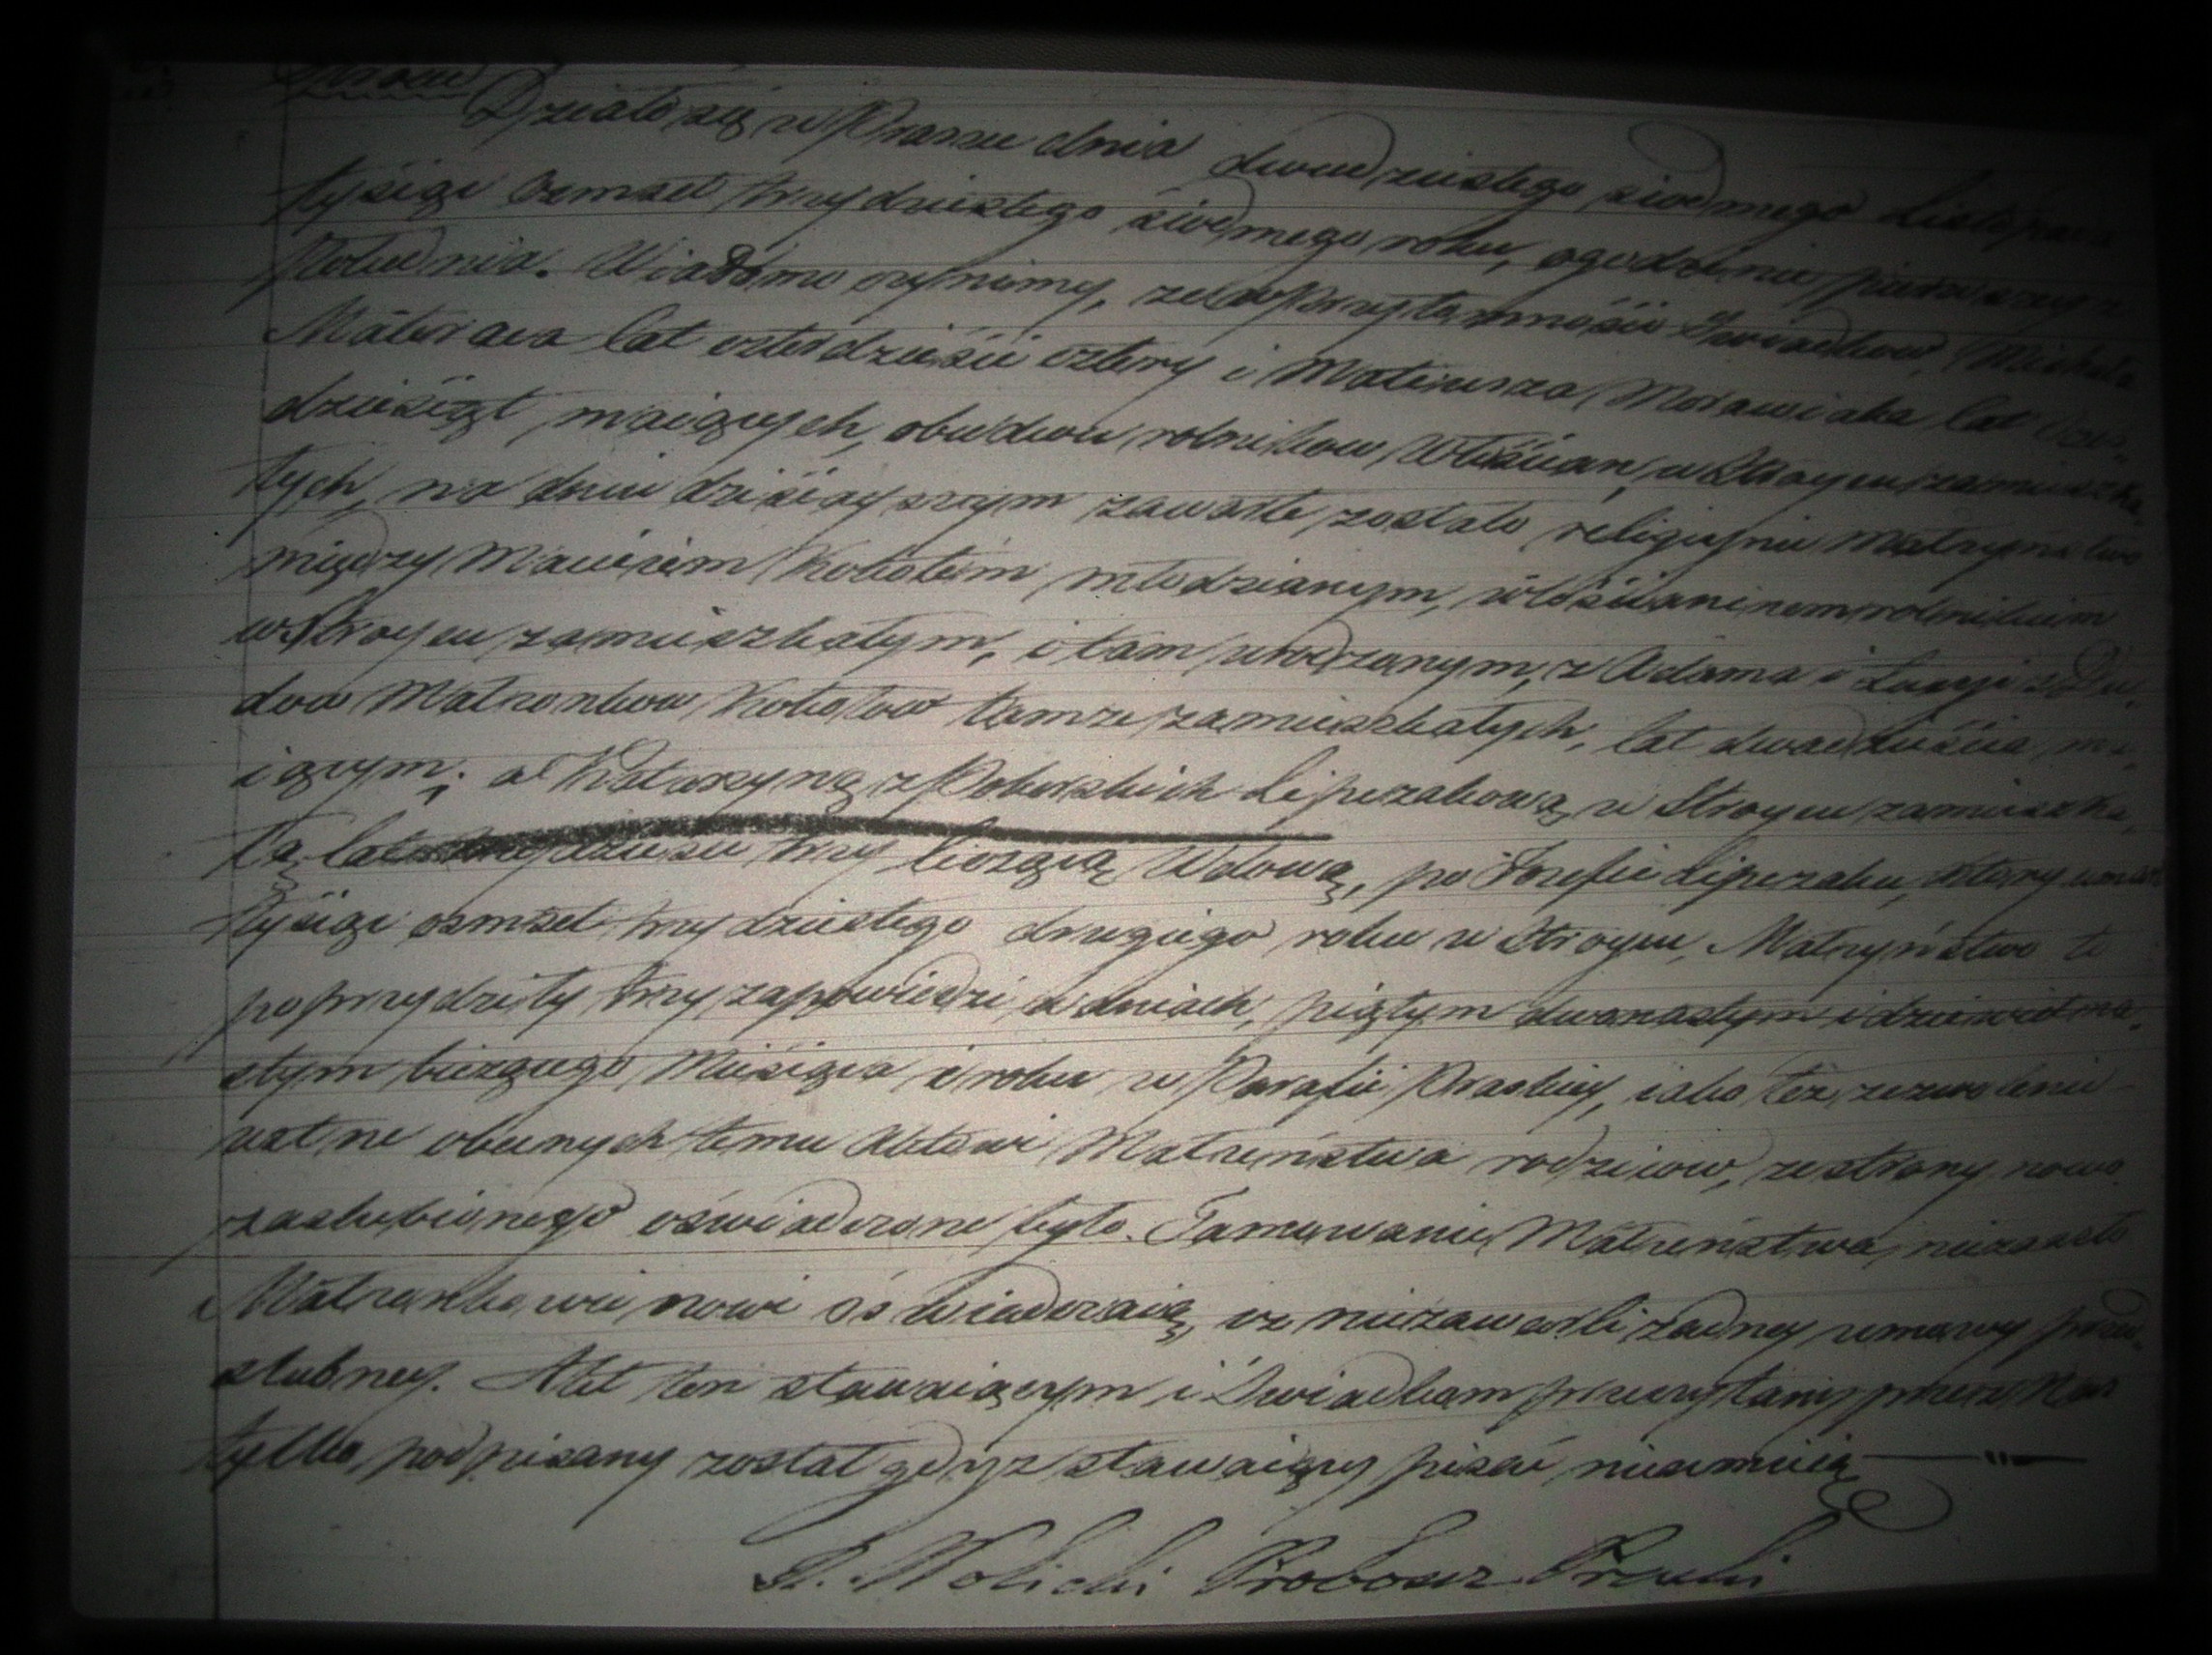 Działo się w Prasce dnia dwudziestego siodmego Listopada
tysiąc osmset trzydziestego siodmego roku, o godzinie pierwszey z
Południa. Wiadomo czynimy, ze w Przytomności Swiadkow, Michała
Matusiaka lat czterdzieści cztery i Mateusza Morawiaka lat
dziesiąt maiących, obudwu rolnikow Włościan, w Stroycu zamieszka„
łych, na dniu dzisieyszym zawarte zostało religiyne Małżeństwo
między Maciеiem Kobotem młodzianym, włościaninem rolnikiem
w Stroycu zamieszkałym, i tam urodzonym, z Adama i Łucyi z
dow Małzonkow Kobotow tamże zamieszkałych, lat dwadzieścia ma„
iącym; a Katarzyną z Poborskich Lipczakową w Stroycu zamieszka„
łą lat trzydzieści trzy liczącą Wdową, po Jozefie Lipczaku, ktory umarł
tysiąc osmset trzydziestego drugiego roku w Stroycu, Małżeństwo to
poprzydziły trzy zapowiedzi w dniach, piątym dwunastym i dziewietna„
stym bieżącego Miesiąca i roku w Parafii Praskiey, iako też zezwolenie
ustne obecnych temu Aktowi Małżeństwa rodzicow, ze strony nowo
zaslubionego oświadczone było. Tamowanie Małżeństwa niezaszło
Małzonkowie nowi oświadczaią, iz niezawarli żadney umowy przed„
slubney. Akt ten stawaiącym i Swiadkom przeczytany przez Nas
tylko podpisany został gdyz stawaiący pisać nieumieią
X. Wolicki Proboszcz Praski